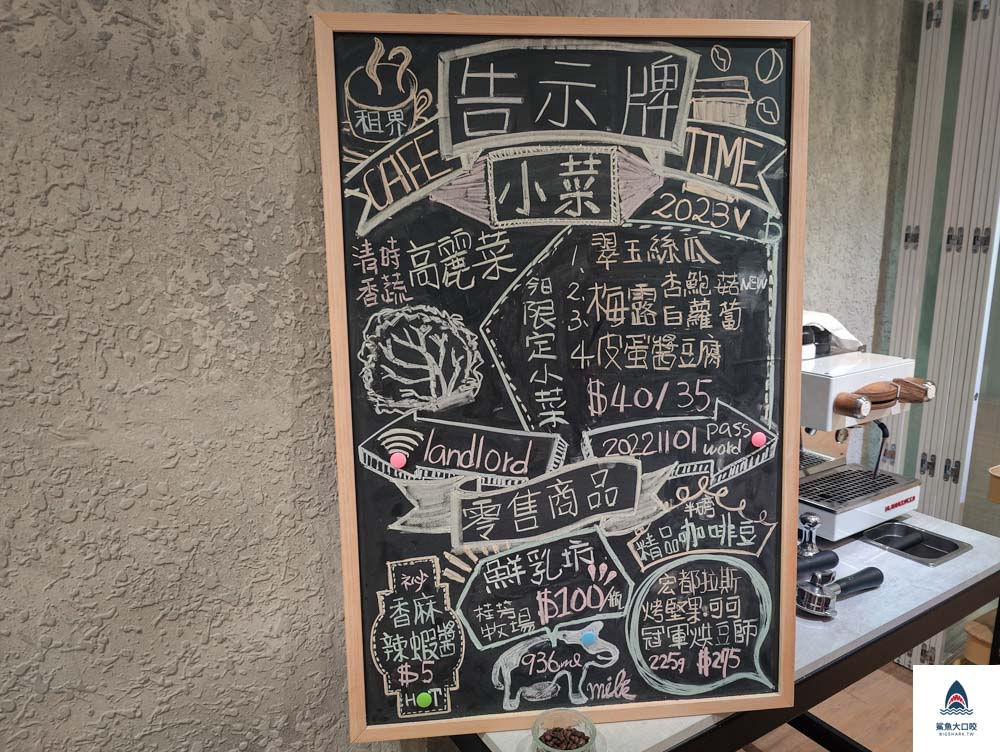 租界
告示牌
CAFE
TIME
小菜
2023
清時
香蔬
高麗菜
今日限定小菜
1. 翠玉絲瓜
2. 杏鮑菇 NEW
3. 梅露白蘿蔔
4. 皮蛋醬豆腐
$40/35
landlord
20221101
pass
word
零售商品
半磅
精品咖啡豆
香麻
辣蝦醬
$5
HOT
鮮乳坊
桂芳
牧場
$100/瓶
936ml
milk
宏都拉斯
烤堅果.可可
冠軍烘豆師
225g $275
鯊魚大口咬
BIGSHARK.TW